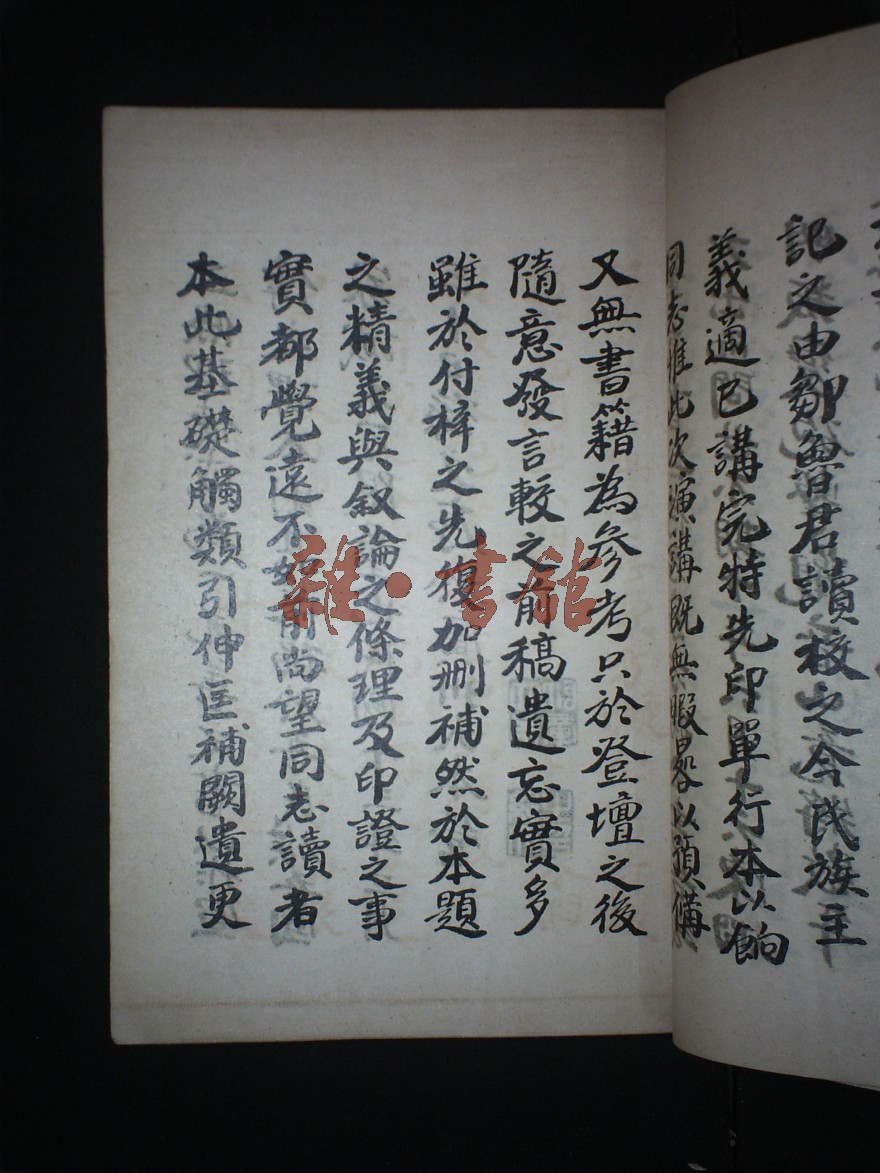 記之由鄒魯君讀校之今民族主
義適已講完特先印單行本以餉
同志惟此次演講既無暇晷以預備
又無書籍為參考只於登壇之後
隨意發言較之前稿遺忘實多
雖於付梓之先復加刪補然於本題
之精義與叙論之條理及印證之事
實都覺遠不如前尚望同志讀者
本此基礎觸類引伸匡補闕遺更
雜·書館